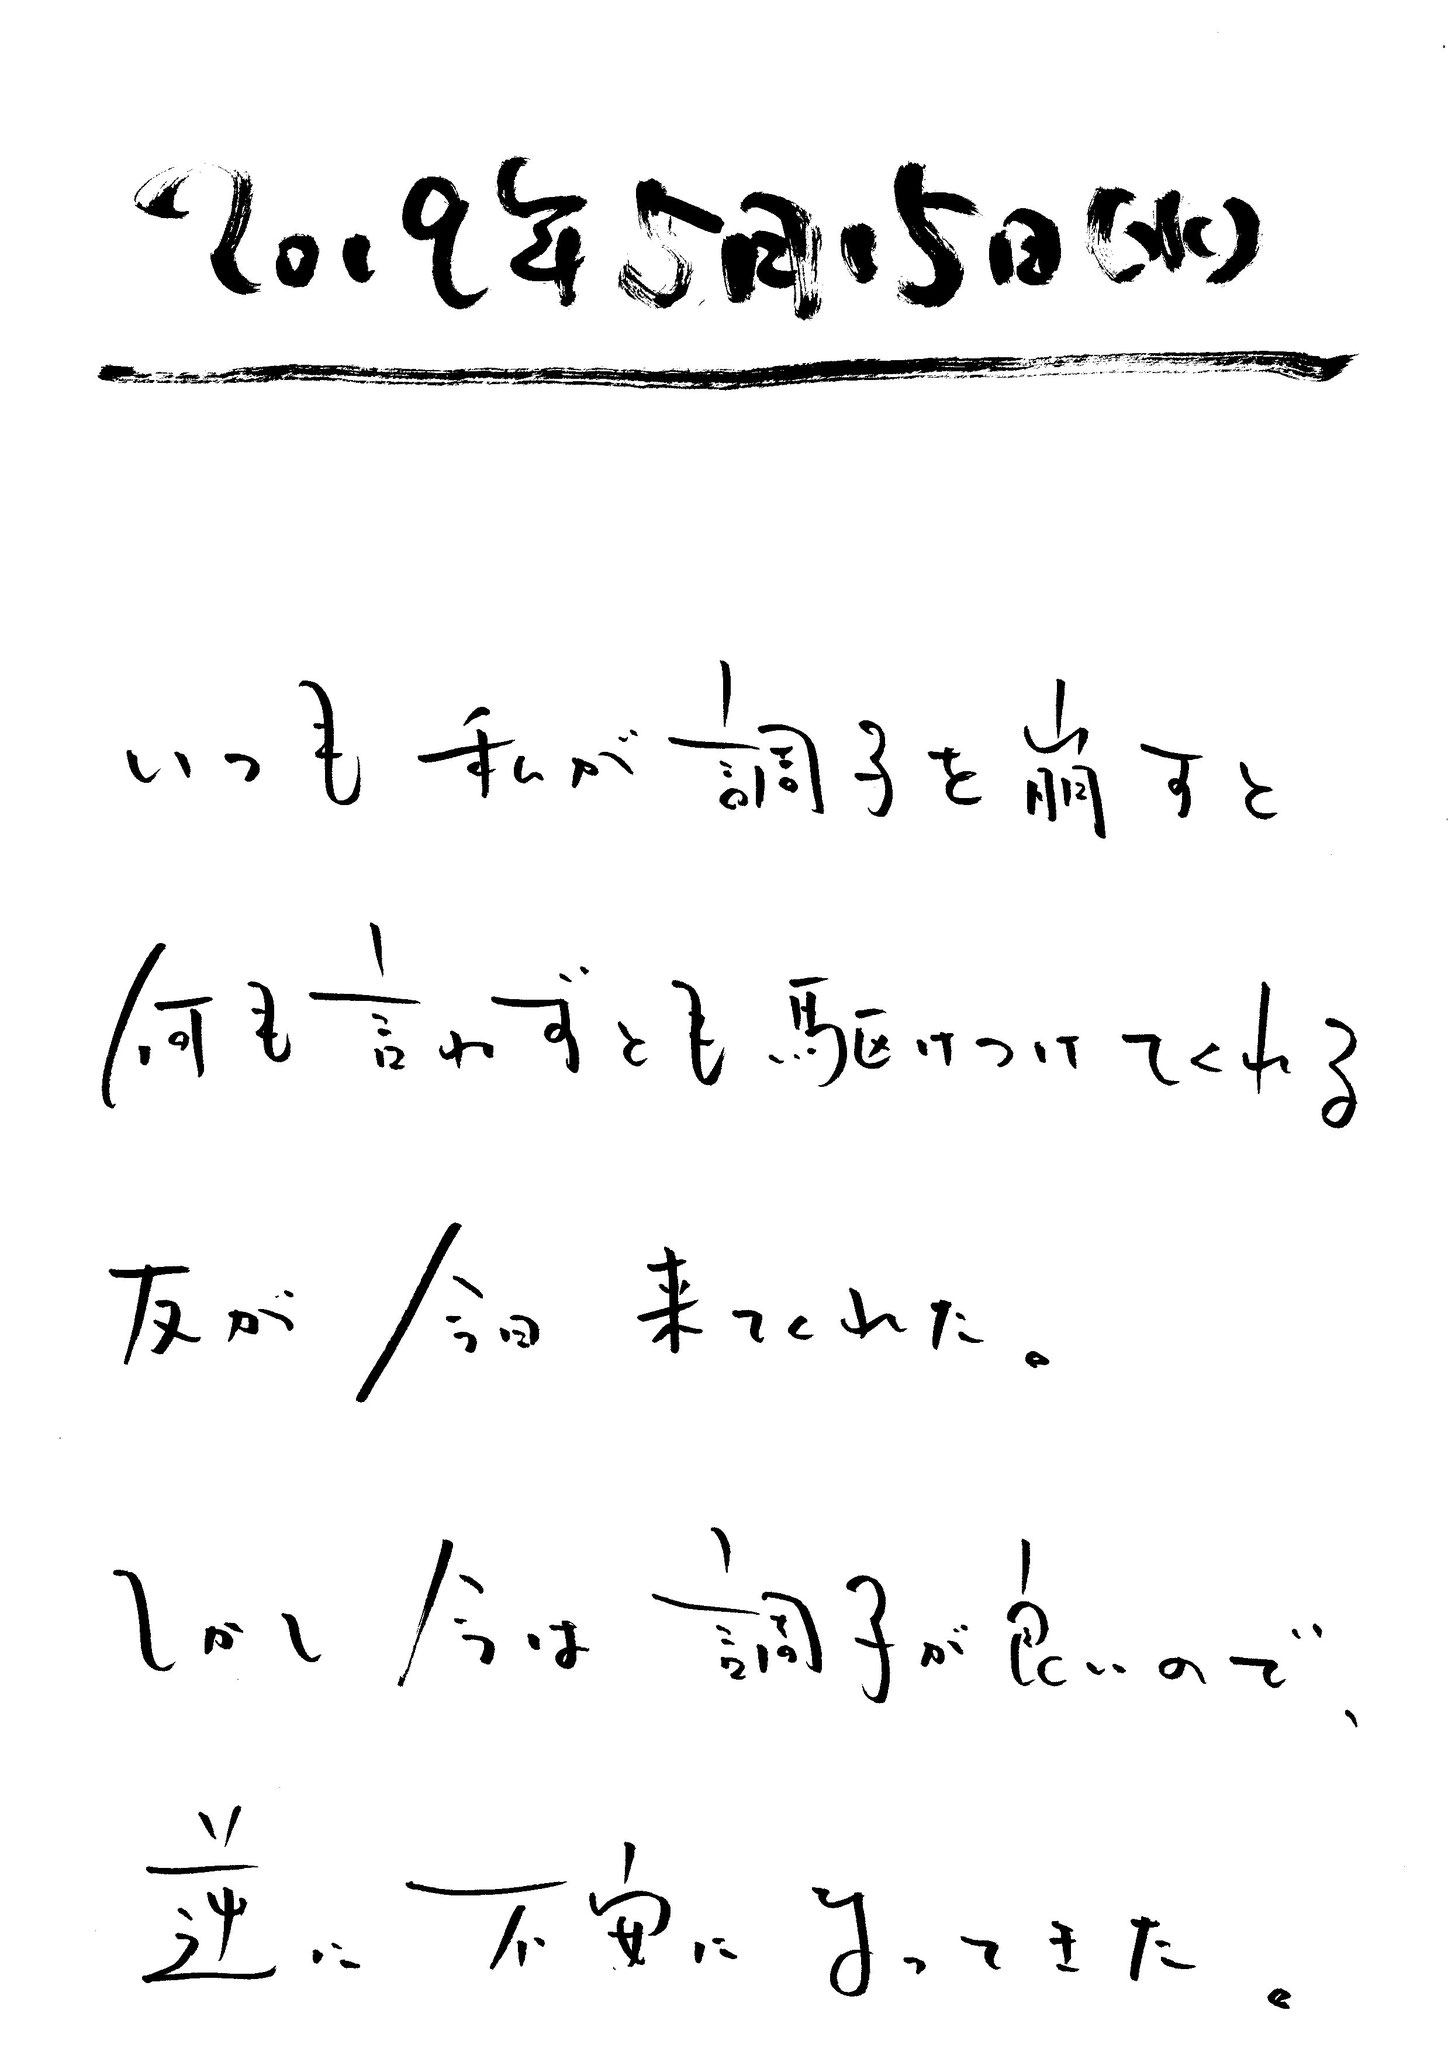 2019年5月15日(水)
いつも私が調子を崩すと
何も言わずとも駆けつけてくれる
友が今日来てくれた。
しかし今は調子が良いので、
逆に不安になってきた。